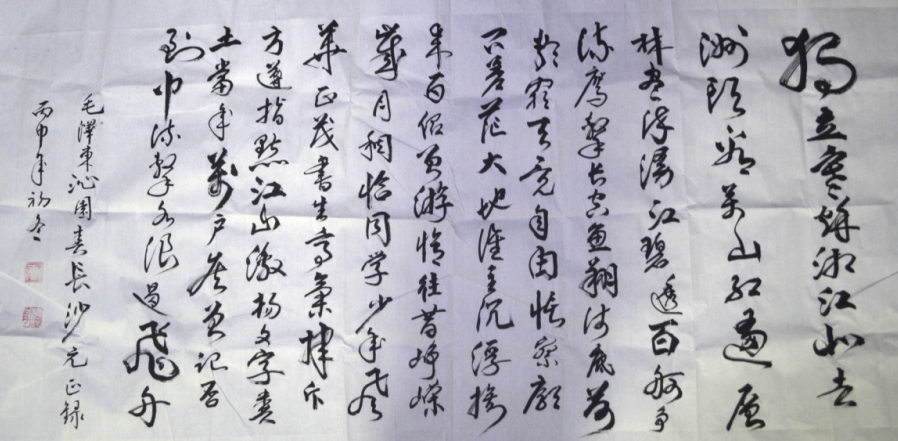 独立寒秋湘江北去
洲头看万山红遍层
林尽染漫江碧透百舸争
流鹰击长空鱼翔浅底万
类霜天竞自由怅寥廓
问苍茫大地谁主沉浮携
来百侣曾游忆往昔峥嵘
岁月稠恰同学少年风
华正茂书生意气挥斥
方遒指点江山激扬文字粪
土当年万户侯曾记否
到中流击水浪遏飞舟
毛泽东沁园春长沙元正录
丙申年初冬